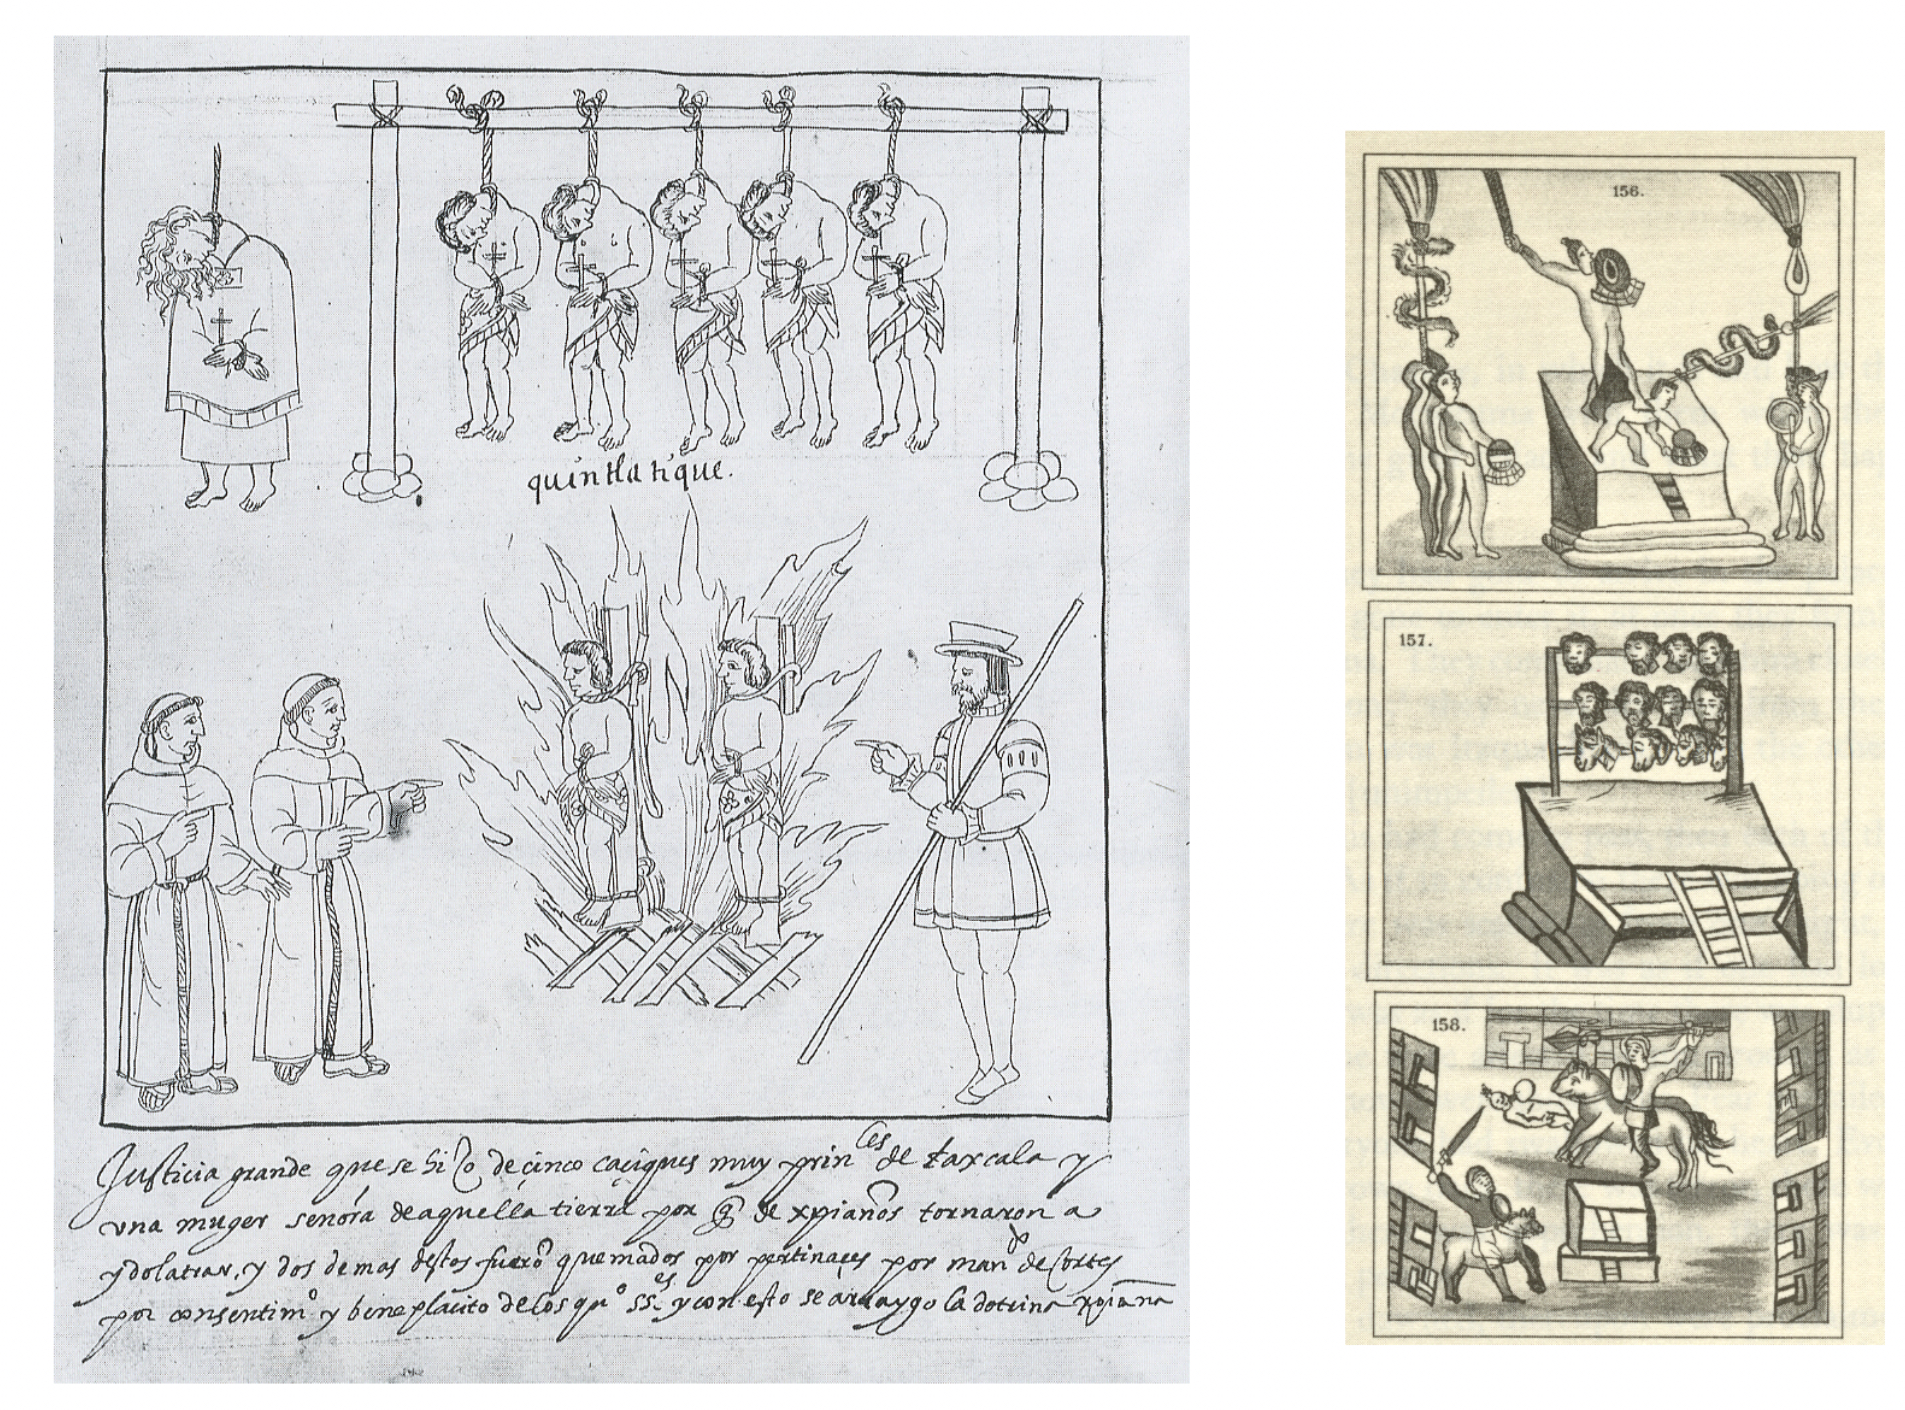 quintlatique.
Justicia grande que se hizo de çinco caçiques muy prinles de taxcala y
vna muger señora de aquella tierra por q de xpianos tornaron a
ydolatrar, y dos demas destos fuerō quemados por pertinaçes por mando de Cortes
por consentimo y beneplacito de los quo sses. y con esto se arraygo la dotrina xpiana
156.
157.
158.